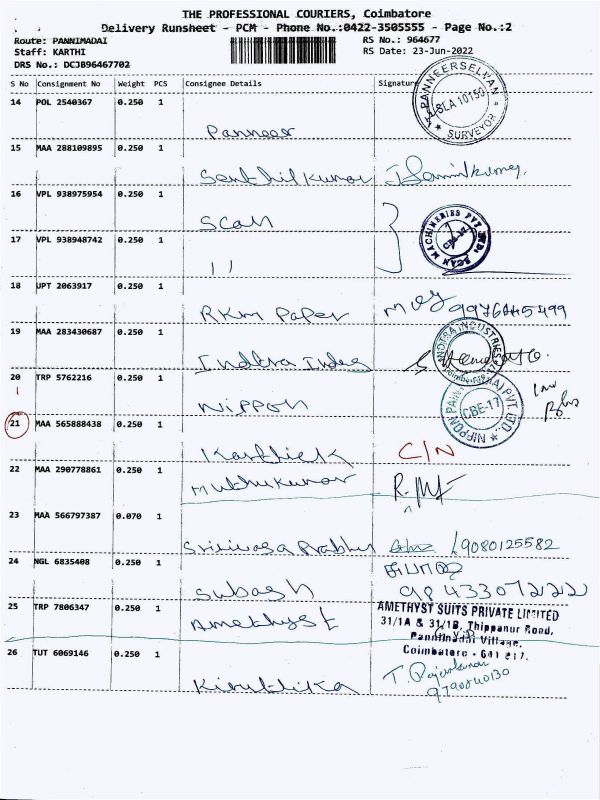 THE PROFESSIONAL COURIERS, Coimbatore
Delivery Runsheet - PCM - Phone No.:0422-3505555 - Page No.:2
Route: PANNIMADAI RS No.: 964677
Staff: KARTHI RS Date: 23-Jun-2022
DRS No.: DCJB96467702
S No Consignment No Weight PCS Consignee Details Signature
14 POL 2540367 0.250 1
PANNEERSELVAN
SLA 10150
SURVEYOR
Panneer
15 MAA 288109895 0.250 1
Senthil kumar
16 VPL 938975954 0.250 1
Scan
SCAN MACHINERIES PVT
17 VPL 938948742 0.250 1
11
18 UPT 2063917 0.250 1
RKM Paper 9976845499
19 MAA 283430687 0.250 1
Indtra Indus
INDTRA INDUSTRIES
20 TRP 5762216 0.250 1
Nippon
NIPPON PAINT PVT. LTD.
CBE-17
21 MAA 565888438 0.250 1
Karthick C/N
22 MAA 290778861 0.250 1
Muthukumar
23 MAA 566797387 0.070 1
Srinivasa Prabhu 9080125582
24 NGL 6835408 0.250 1
Subash 9843307222
25 TRP 7806347 0.250 1
Amethyst
AMETHYST SUITS PRIVATE LIMITED
31/1A & 31/1B, Thippanur Road,
Pannimadai Village,
Coimbatore - 641 017.
26 TUT 6069146 0.250 1
Kiruthika
T. Rajeshkumar
9790840130